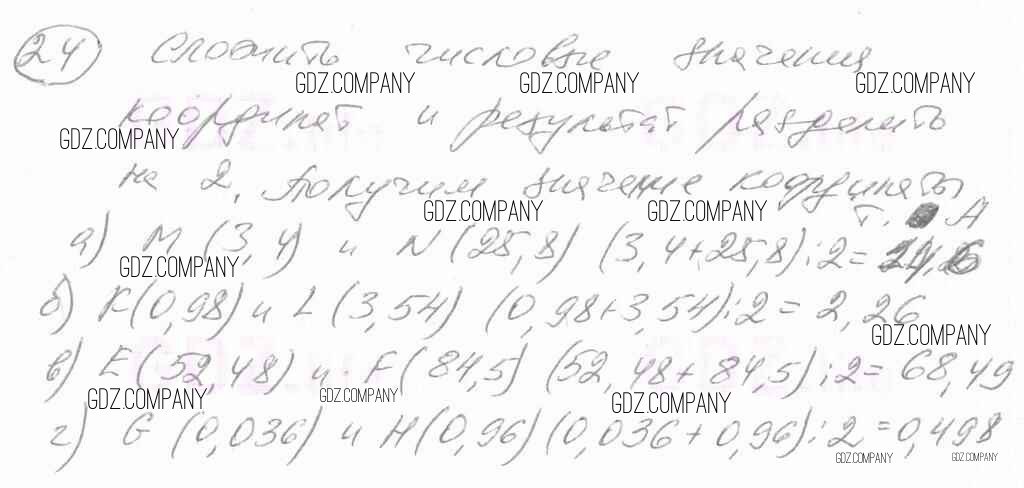 24 Сложить числовые значения
координат и результат разделить
на 2, получим значение координаты
т. А
а) М (3,4) и N (25,8) (3,4+25,8):2=
б) К(0,98) и L (3,54) (0,98+3,54):2=2,26
в) Е(52,48) и F(84,5) (52,48+84,5):2=68,49
г) G (0,036) и Н(0,96) (0,036+0,96):2=0,498
GDZ.COMPANY
GDZ.COMPANY
GDZ.COMPANY
GDZ.COMPANY
GDZ.COMPANY
GDZ.COMPANY
GDZ.COMPANY
GDZ.COMPANY
GDZ.COMPANY
GDZ.COMPANY
GDZ.COMPANY
GDZ.COMPANY
GDZ.COMPANY